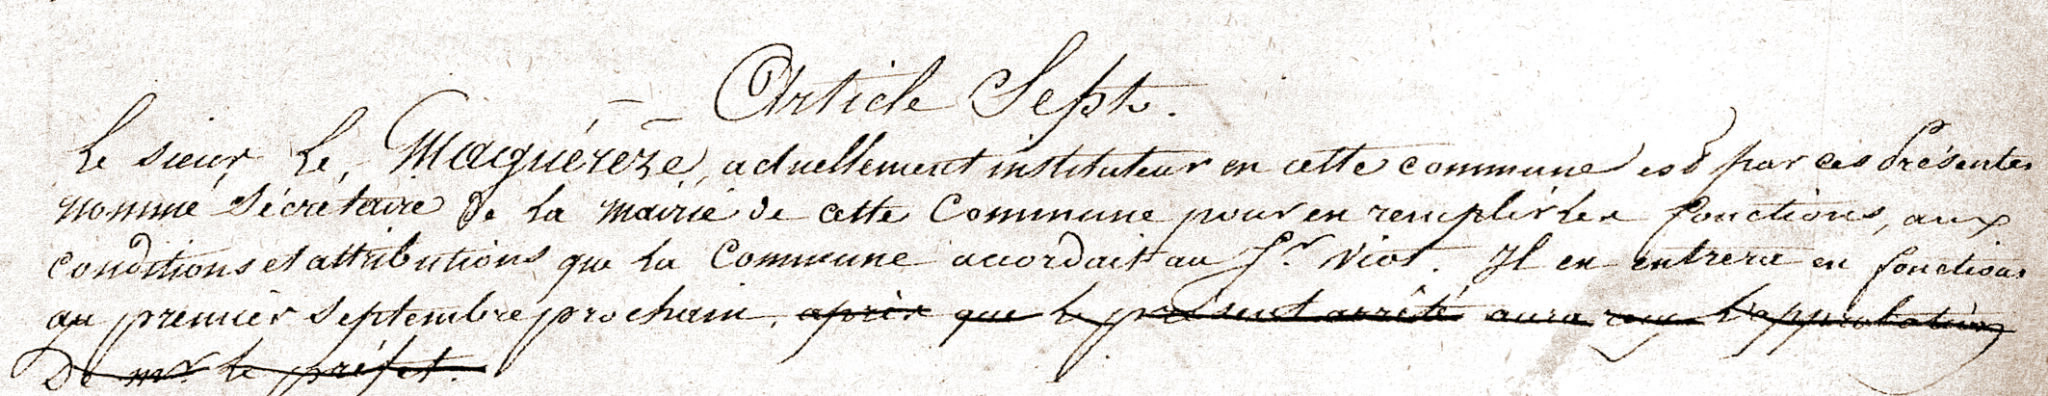 Article Sept.
Le sieur Le Maguérèze, actuellement instituteur en cette commune est par ces présentes
nommé Sécrétaire de la mairie de cette Commune pour en remplir les fonctions, aux
conditions et attributions que la Commune accordait au Sr. Viot. Il en entrera en fonctions
au premier septembre prochain, après que le présent arrêté aura reçu l'approbation
De mr. le préfet.